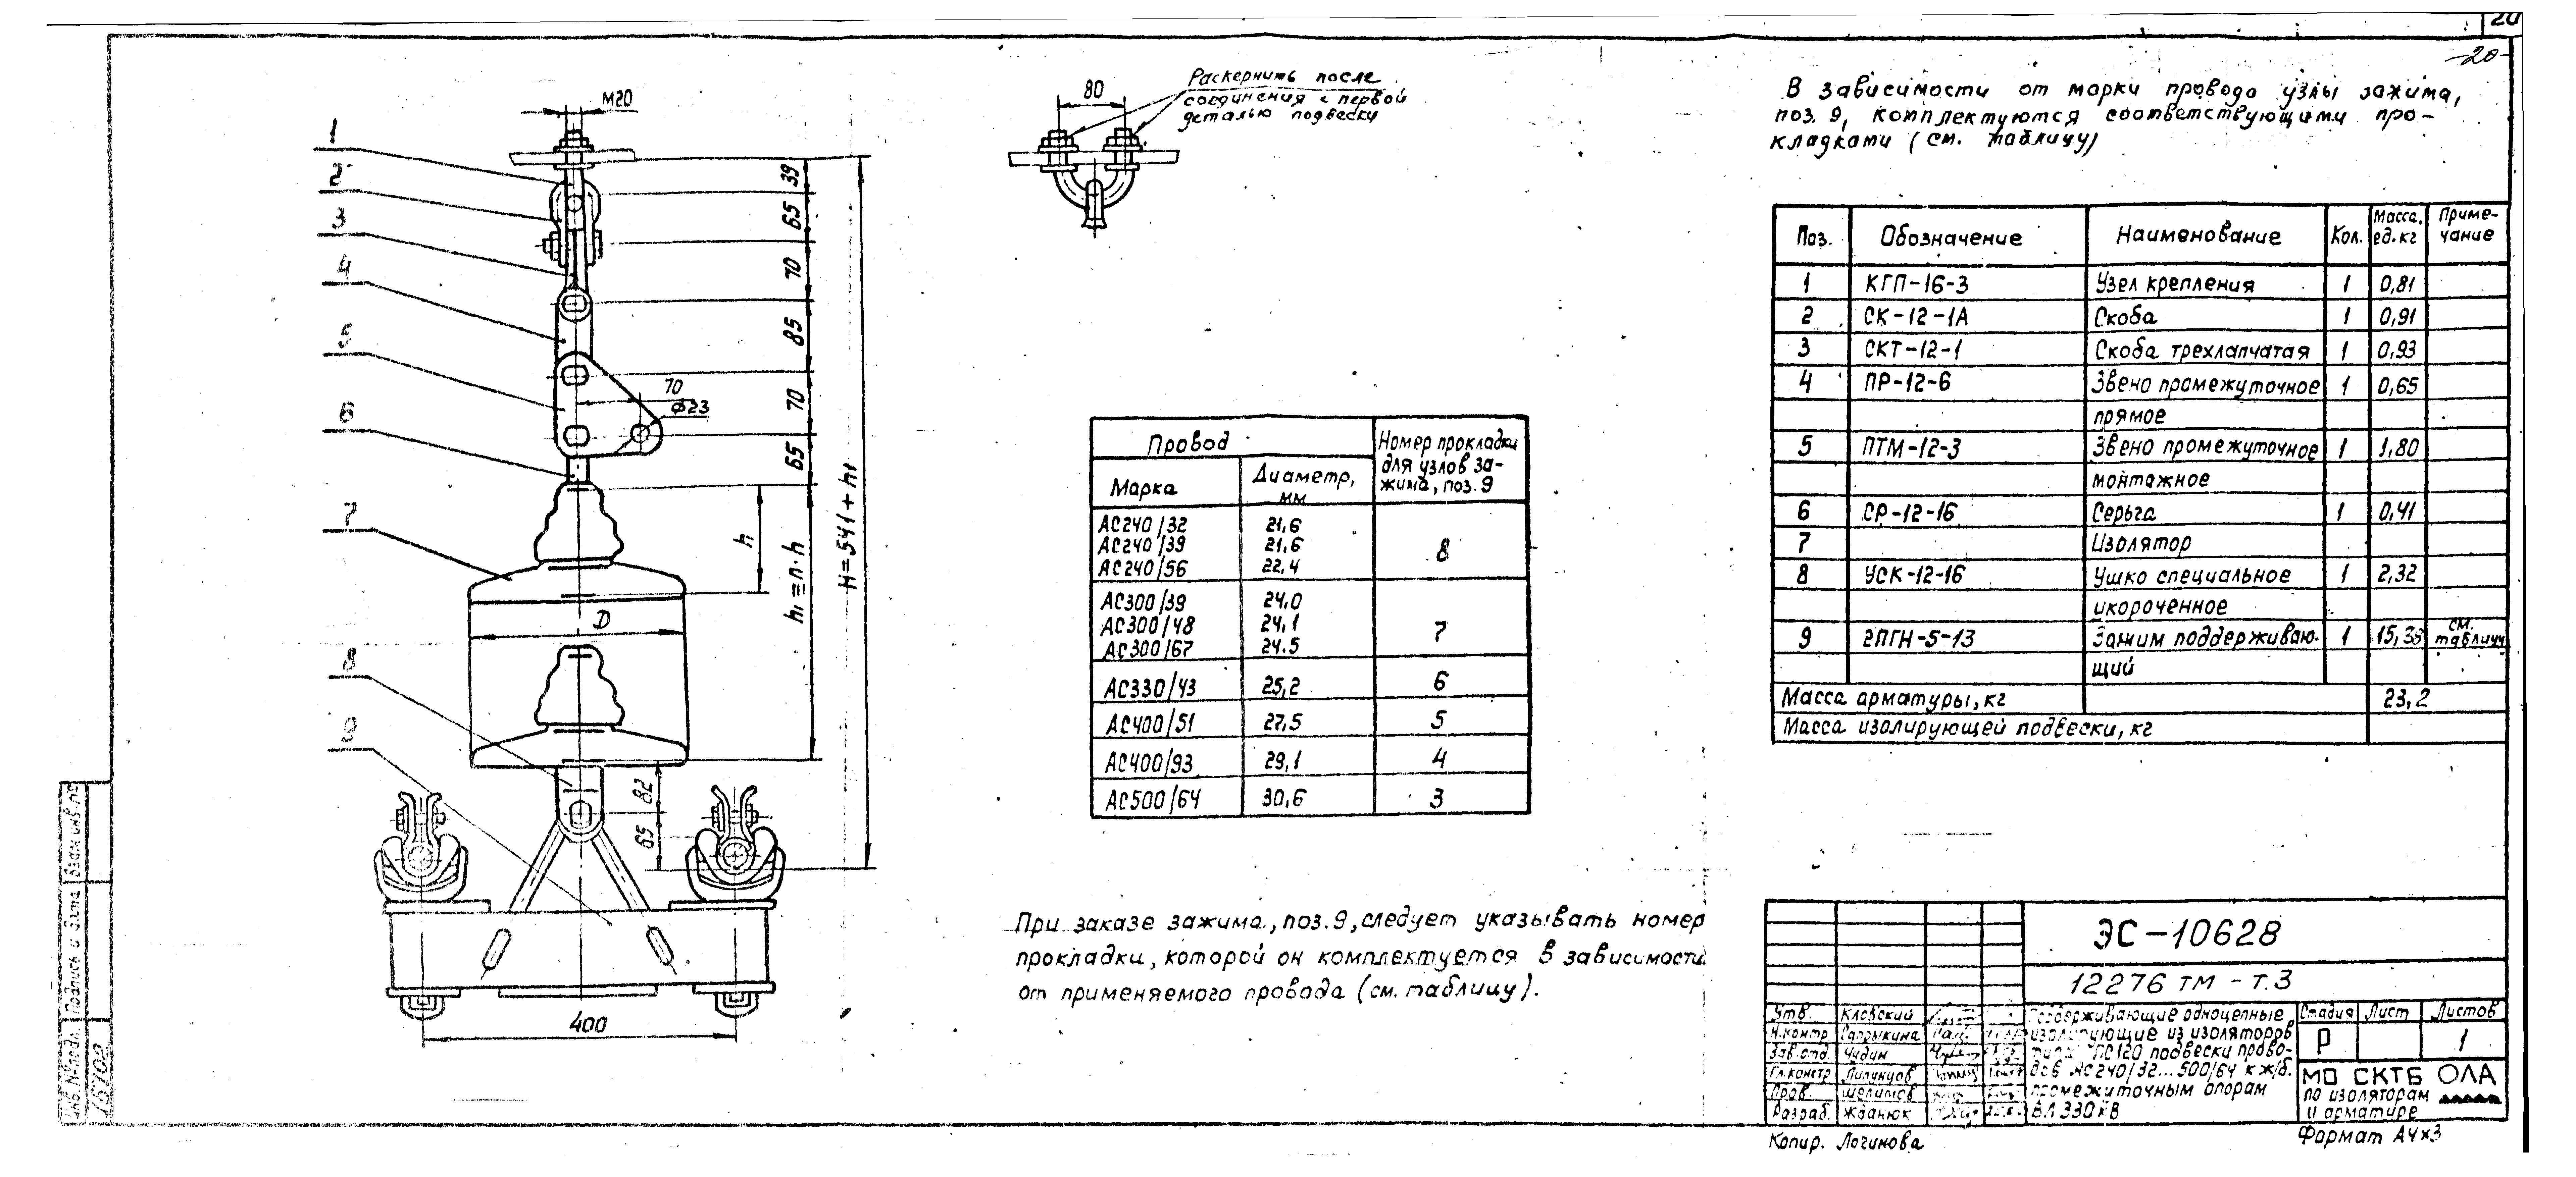 20
-20-
М20
1
2
3
4
5
6
7
8
9
39
65
70
85
70
65
70
Ф23
h
h₁=n·h
H=541+h₁
D
82
65
400
80
Раскернить после
соединения с первой
деталью подвески
В зависимости от марки провода узлы зажима,
поз. 9, комплектуются соответствующими про-
кладками (см. таблицу)
Провод
Номер прокладки
для узлов за-
жима, поз. 9
Марка
Диаметр,
мм
АС240/32 21,6
АС240/39 21,6 8
АС240/56 22,4
АС300/39 24,0
АС300/48 24,1 7
АС300/67 24.5
АС330/43 25,2 6
АС400/51 27,5 5
АС400/93 29,1 4
АС500/64 30,6 3
При заказе зажима, поз. 9, следует указывать номер
прокладки, которой он комплектуется в зависимости
от применяемого провода (см. таблицу).
Поз. Обозначение Наименование Кол. Масса, ед. кг Приме-чание
1 КГП-16-3 Узел крепления 1 0,81
2 СК-12-1А Скоба 1 0,91
3 СКТ-12-1 Скоба трехлапчатая 1 0,93
4 ПР-12-6 Звено промежуточное 1 0,65
прямое
5 ПТМ-12-3 Звено промежуточное 1 1,80
монтажное
6 СР-12-16 Серьга 1 0,41
7 Изолятор
8 УСК-12-16 Ушко специальное 1 2,32
укороченное
9 2ПГН-5-13 Зажим поддерживаю- 1 15,35 см. таблицу
щий
Масса арматуры, кг 23,2
Масса изолирующей подвески, кг
ЭС-10628
12276 тм - т. 3
Утв. Кловский
Н.контр
Зав.отд. Чудин
Гл.констр
Пров.
Разраб. Жданюк
Поддерживающие одноцепные
изолирующие из изоляторов
типа ПС120 подвески прово-
дов АС240/32...500/64 к ж/б.
промежуточным опорам
ВЛ 330 кВ
Стадия Лист Листов
Р 1
МО СКТБ ОЛА
по изоляторам
и арматуре
Копир. Логинова
Формат А4х3
Взам. инв. №
Подпись и дата
Инв. № подл.